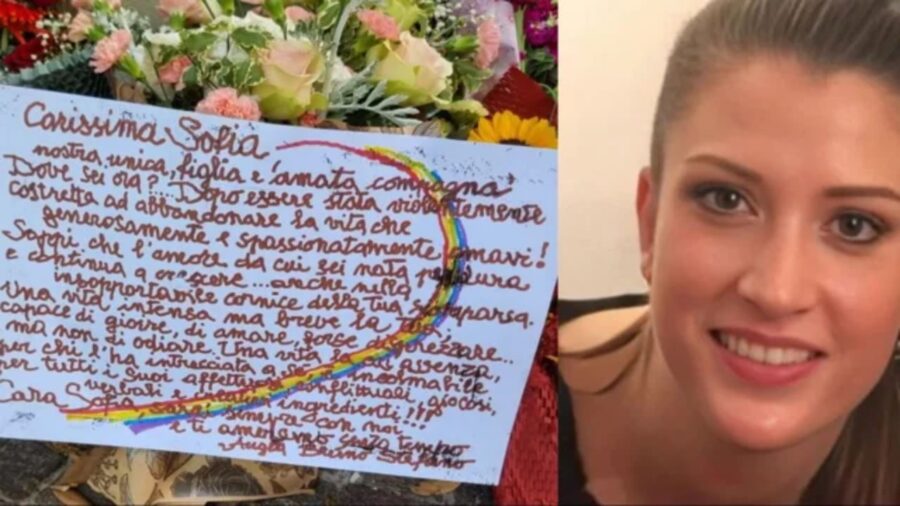 Carissima Sofia,
nostra unica, figlia e "amata compagna"
Dove sei ora?... Dopo essere stata violentemente
costretta ad abbandonare la vita che
generosamente e spassionatamente amavi!
Sappi che l'amore da cui sei nata perdura
e continua a crescere... anche nella
insopportabile cornice della tua scomparsa.
Una vita intensa ma breve la tua,
capace di gioire, di amare, forse disprezzare...
ma non, di odiare. Una vita la cui assenza,
per chi l'ha intrecciata a incolmabile
per tutti i suoi affettuosi, conflittuali, giocosi,
verbosi e ingredienti!!!
Cara Sofia sarai sempre con noi
e ti ameremo senza tempo
Bruno Stefano